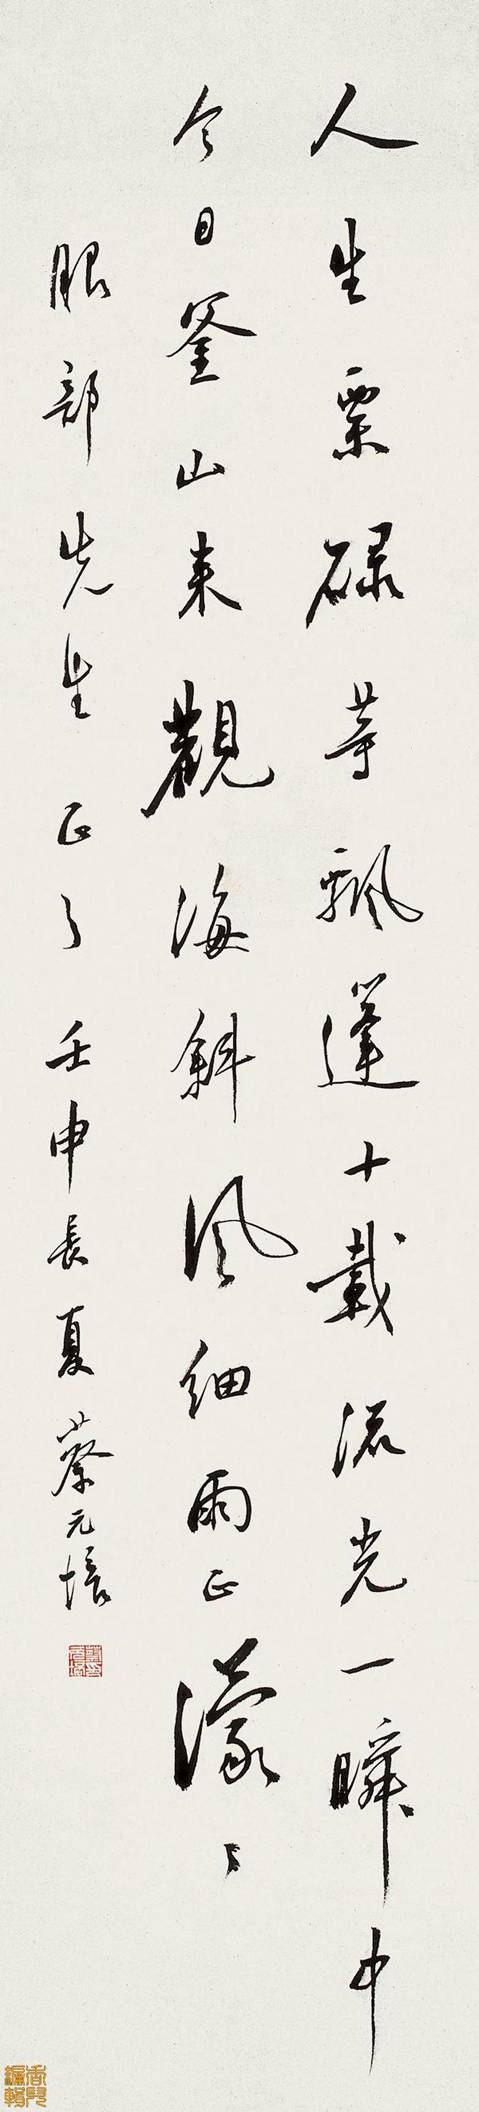 人生栗碌等飄蓬十載流光一瞬中
今日釜山来觀海斜风细雨正濛〻
服部先生正之 壬申長夏 蔡元培